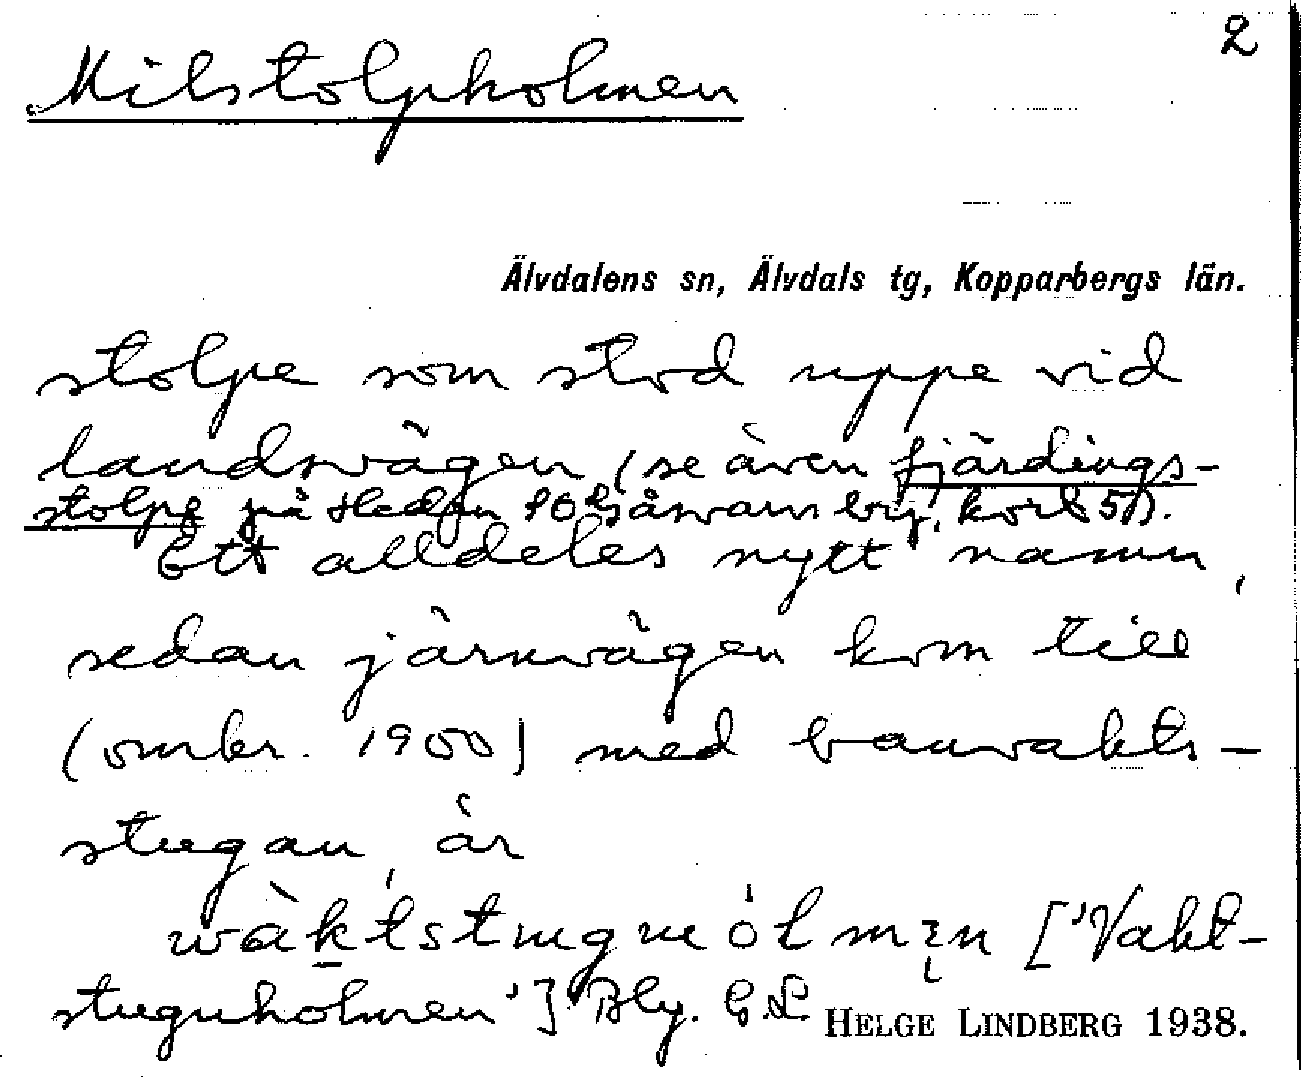 2
Milstolpholmen
Älvdalens sn, Älvdals tg, Kopparbergs län.
stolpe som stod uppe vid
landsvägen (se även fjärdings-
stolpe på Heden och Åsvarn by, kort 5).
Ett alldeles nytt namn,
sedan järnvägen kom till
(omkr. 1900) med banvakts-
stugan, är
['Vakt-
stuguholmen'] Bly. E L
HELGE LINDBERG 1938.